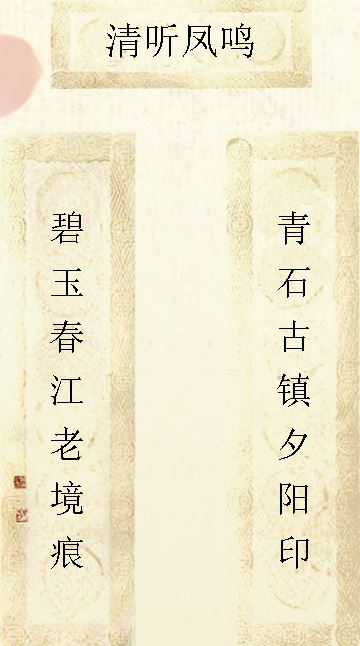 清听凤鸣
青石古镇夕阳印
碧玉春江老境痕